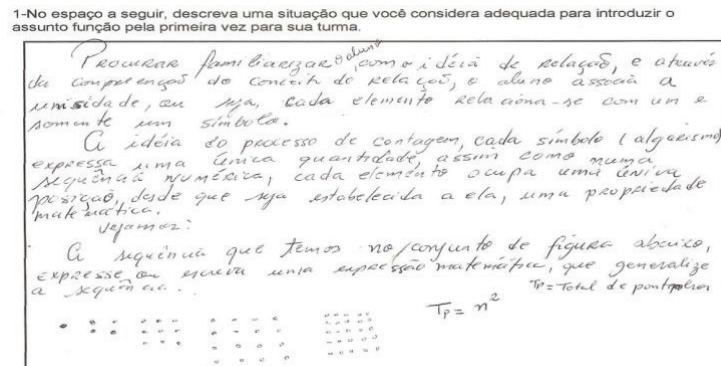 1-No espaço a seguir, descreva uma situação que você considera adequada para introduzir o
assunto função pela primeira vez para sua turma.
Procurar familiarizar o aluno com a idéia de relação, e através
da compreenção do conceito de relação, o aluno associa a
unicidade, ou seja, cada elemento relaciona-se com um e
somente um símbolo.
A idéia do processo de contagem, cada símbolo (algarismo)
expressa uma única quantidade, assim como numa
sequência numérica, cada elemento ocupa uma única
posição, desde que seja estabelecida a ela, uma propriedade
matemática.
Vejamos:
A sequência que temos no conjunto de figura abaixo,
expresse ou escreva uma expressão matemática, que generalize
a sequência.
Tp = Total de pontos
Tp = n²